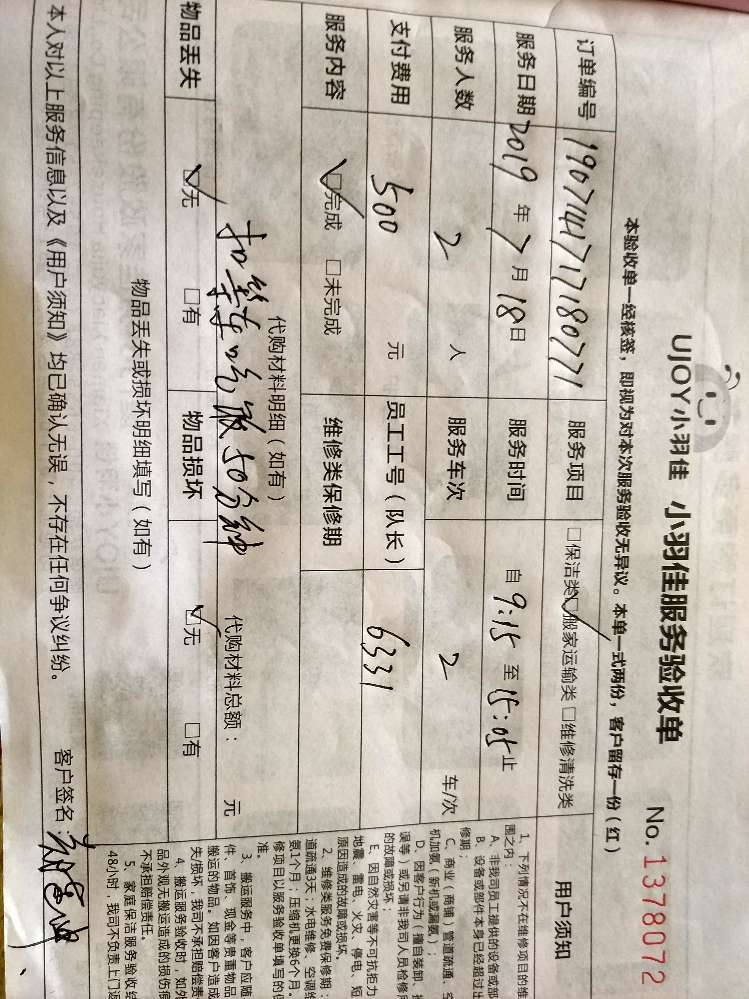 UJOY小羽佳 小羽佳服务验收单 No. 1378072
本验收单一经核签，即视为对本次服务验收无异议。本单一式两份，客户留存一份（红）
订单编号 190714171780771 服务项目 □保洁类 ☑搬家运输类 □维修清洗类
服务日期 2019 年 7 月 18 日 服务时间 自 9:15 至 15:05 止
服务人数 2 人 服务车次 2 车/次
支付费用 500 元 员工工号（队长） 6331
服务内容 ☑完成 □未完成 维修类保修期
代购材料明细（如有） 代购材料总额： 元
扣等车吃饭50分钟
物品丢失 ☑无 □有 物品损坏 ☑无 □有
物品丢失或损坏明细填写（如有）
本人对以上服务信息以及《用户须知》均已确认无误，不存在任何争议纠纷。 客户签名：
用户须知
1、下列情况不在维修项目的维
围之内：
A、非我司员工提供的设备或部
B、设备或部件本身已经超过出
修期；
C、商业（商铺、管道疏通、空
机加氨（新机或漏氨）；
D、因客户行为（擅自装卸、
误等）或另请非我司人员检修
的故障或损坏；
E、因自然灾害等不可抗拒力
地震、雷电、火灾、停电、短
原因造成的故障或损坏。
2、维修类服务免费保修期：
道疏通3天；水电维修、空调
氨1个月；压缩机更换6个月。
修项目以服务验收单填写的
准。
3、搬运服务中，客户应随
件、首饰、现金等贵重物品
搬运的物品。如因客户造成
失/损坏，我司不承担赔偿责
4、搬运服务验收时，如外
品外观无搬运造成的损伤
不承担赔偿责任。
5、家庭保洁服务验收
48小时，我司不负责上门返